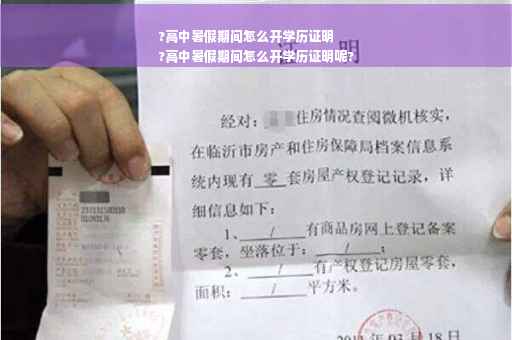 ?高中暑假期间怎么开学历证明
?高中暑假期间怎么开学历证明呢?
证 明
经对: 住房情况查阅微机核实,
在临沂市房产和住房保障局档案信息系
统内现有 零 套房屋产权登记记录,详
细信息如下:
1、 / 有商品房网上登记备案
零套,坐落位于: / ;
2、 / 有产权登记房屋零套,
面积: / 平方米。
03月18日